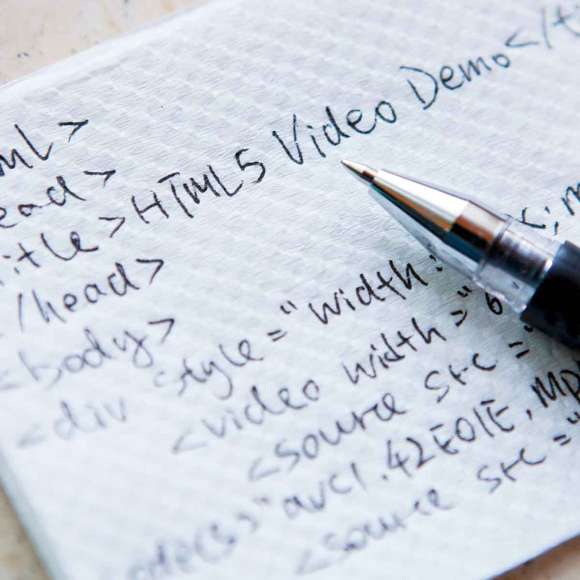 ml>
ead>
title>HTML5 Video Demo</t
</head>
<body>
<div style="width:
<video width="6
<source src="
odecs="avc1.42E01E, mp
<source src="